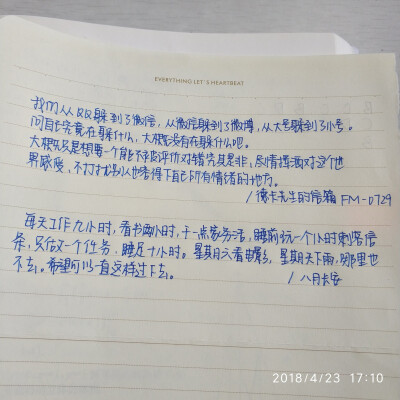 EVERYTHING LET'S HEARTBEAT
我们从QQ躲到了微信，从微信躲到了微博，从大号躲到了小号。
问自己究竟在躲什么，大概没有在躲什么吧。
大概只是想要一个能不被评价对错究其是非，尽情挥洒对这世
界感受，不打扰别人也容得下自己所有情绪的地方。
/德卡先生的信箱 FM-0729
每天工作九小时，看书两小时，干一点家务活，睡前玩一个小时刺客信
条，只做一个任务，睡足十小时。星期六看电影，星期天下雨，哪里也
不去。希望可以一直这样过下去。
/八月长安
2018/4/23 17:10